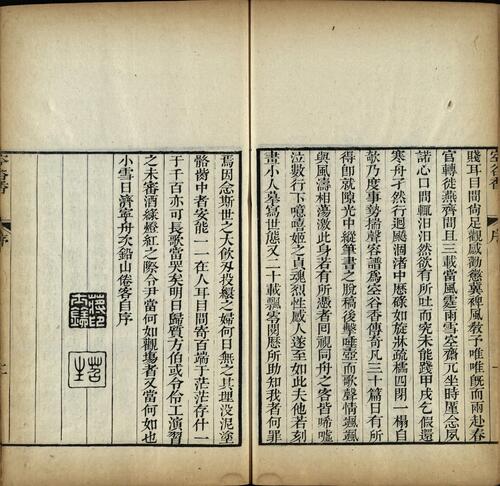 賤耳目間尚足觀感勸懲冀裨風敎予唯唯旣而兩赴春
官轉徙燕齊間且三載當風霾雨雪空齋兀坐時厪念夙
諾心口間輒汩汩然欲有所吐而究未能踐甲戌乞假還
寒舟孑然行迴飈涸渚中歷碌如旋牀疏櫺四閉一榻自
欹乃度事勢揣聲容譜為空谷香傳奇凡三十篇日有所
得卽就隙光中縱筆書之脫稿後擊唾壺而歌聲情颯颯
與風濤相蕩激此身若有所慿者回視同舟之客皆唏噓
泣數行下噫嘻姬之貞魂烈性感人遂至如此夫他若刻
畫小人摹寫世態又二十載飄零閱歷所助知我者何罪
焉因念斯世之大飲刃投繯之婦何日無之其理沒泥塗
骼胔中者安能一一在人耳目間寄百端于茫茫存什一
于千百亦可長歌當哭矣明日歸質方伯或令伶工演習
之未審酒綠燈紅之際令尹當何如觀塲者又當何如也
小雪日濟寧舟次鉛山倦客自序
空谷香
序